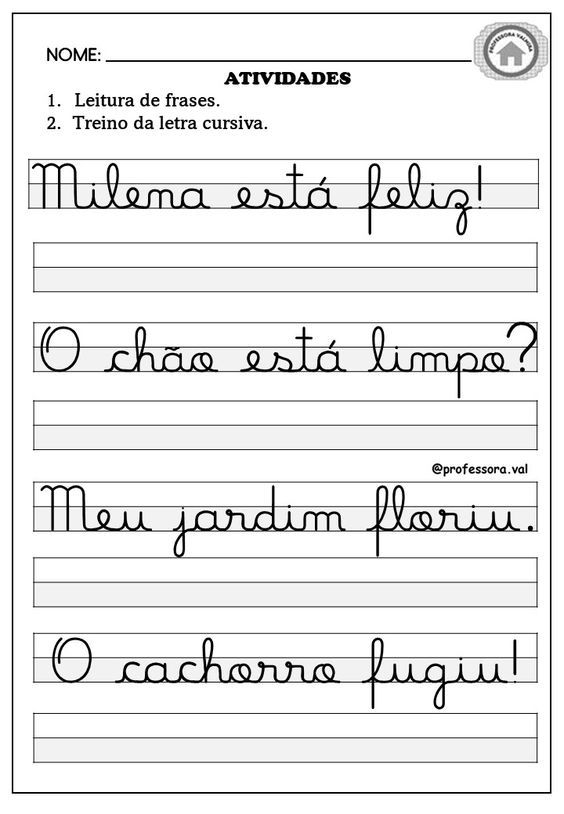 NOME:
PROFESSORA VALNUSA
ATIVIDADES
1. Leitura de frases.
2. Treino da letra cursiva.
Milena está feliz!
O chão está limpo?
@professora.val
Meu jardim floriu.
O cachorro fugiu!